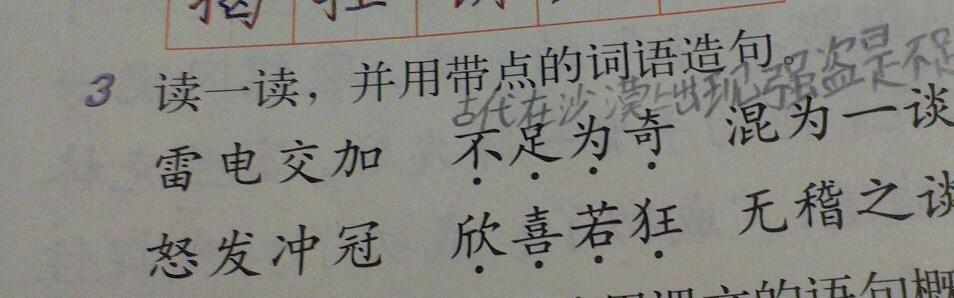 3 读一读，并用带点的词语造句。
古代在沙漠上出现强盗是不足
雷电交加 不足为奇 混为一谈
怒发冲冠 欣喜若狂 无稽之谈
课文的语句概